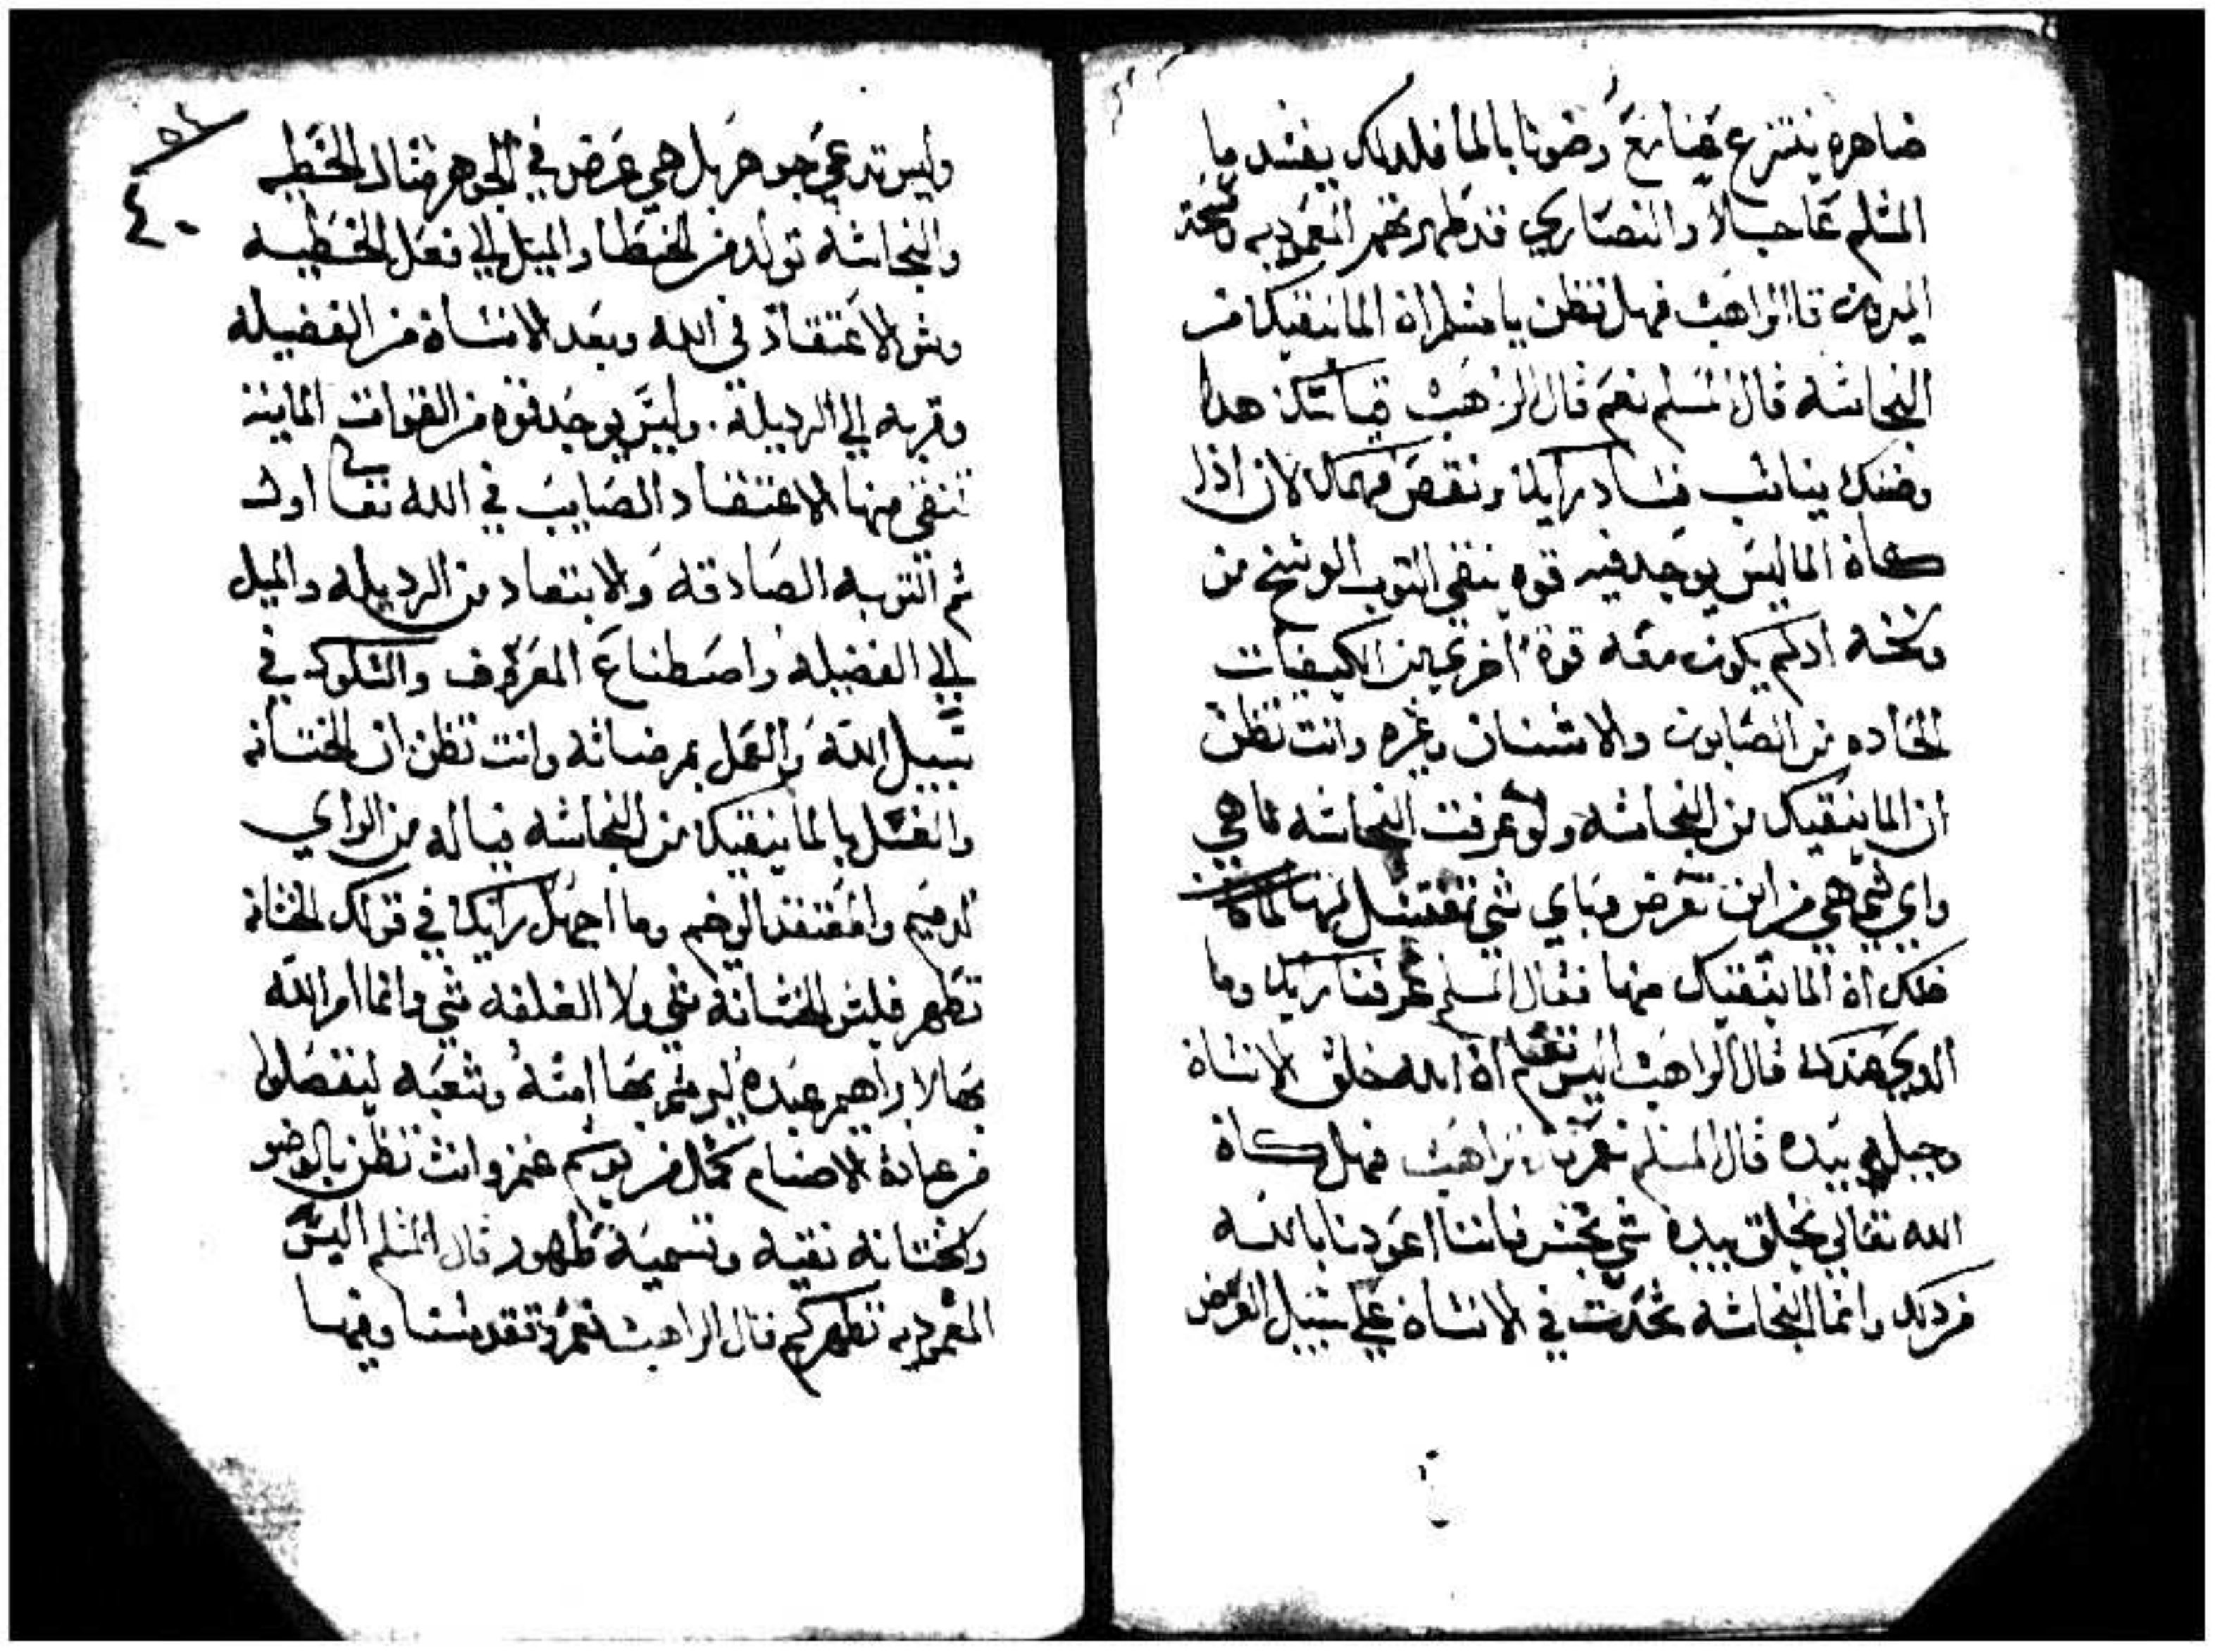 ضاهره ينتزع وضونا بالما فلدلك يفسد ما
المسلم عاجلاً والنصاري قد طهرتهم المعموديه ومسحة
الميرون قال الراهب فهل تظن يا مسلم ان الما ينقيك من
النجاسه قال المسلم نعم قال الراهب قياسك هدا
وضنك يناسب فساد رايك ونقص فهمك لان ادا
كان الما ليس يوجد فيه قوه ينقي التوب الوسخ من
وسخه ادلم يكون معه قوة اخري من الكيفيات
الحاده من الصابون والاشنان وغيره وانت تظن
ان الما ينقيك من النجاسه ولو عرفت النجاسه ما هي
واي شي هي من اين تعرض وباي شي تغتسل منها لما كان
ضنك ان الما ينقيك منها فقال المسلم عرفنا رايك وما
الدي عندك قال الراهب اليس تعلم ان الله خلق الانسان
وجبله بيده قال المسلم نعم قال الراهب فهل كان
الله تعالي يخلق بيده شي نجس فاننا اعودنا بالله
من دلك وانما النجاسه تحدت في الانسان علي سبيل العرض
٤٠
وليس تدعي جوهر بل هي عرض في الجوهر متال الخطيه
والنجاسه تولد من الخطا والميل الي فعل الخطيه
وسو الاعتقاد في الله وبعد الانسان من الفضيله
وقربه الي الرديلة. وليس يوجد قوه من القوات الماييه
تنقي منها الا الاعتقاد الصايب في الله تعالي اولا
ثم التوبه الصادقه والابتعاد من الرديله والميل
الي الفضيله واصطناع المعروف والسلوك في
سبيل الله والعمل بمرضاته وانت تظن ان الختانه
والغسل بالما ينقيك من النجاسه فياله من الراي
الدميم والمعتقد الوخيم وما اجهل رايك في قولك الختانه
تطهر فليس الختانة شي ولا الغلفه شي وانما امر الله
بها لابراهيم عبده ليرسم بها امته وشعبه لينفصلوا
من عبادة الاصنام كمتل من يرسم غنم وانت تظن بالوضو
والختانه نقيه وتسميه طهور قال المسلم اليس
المعموديه تطهركم قال الراهب نعم وتقدسنا وفيها